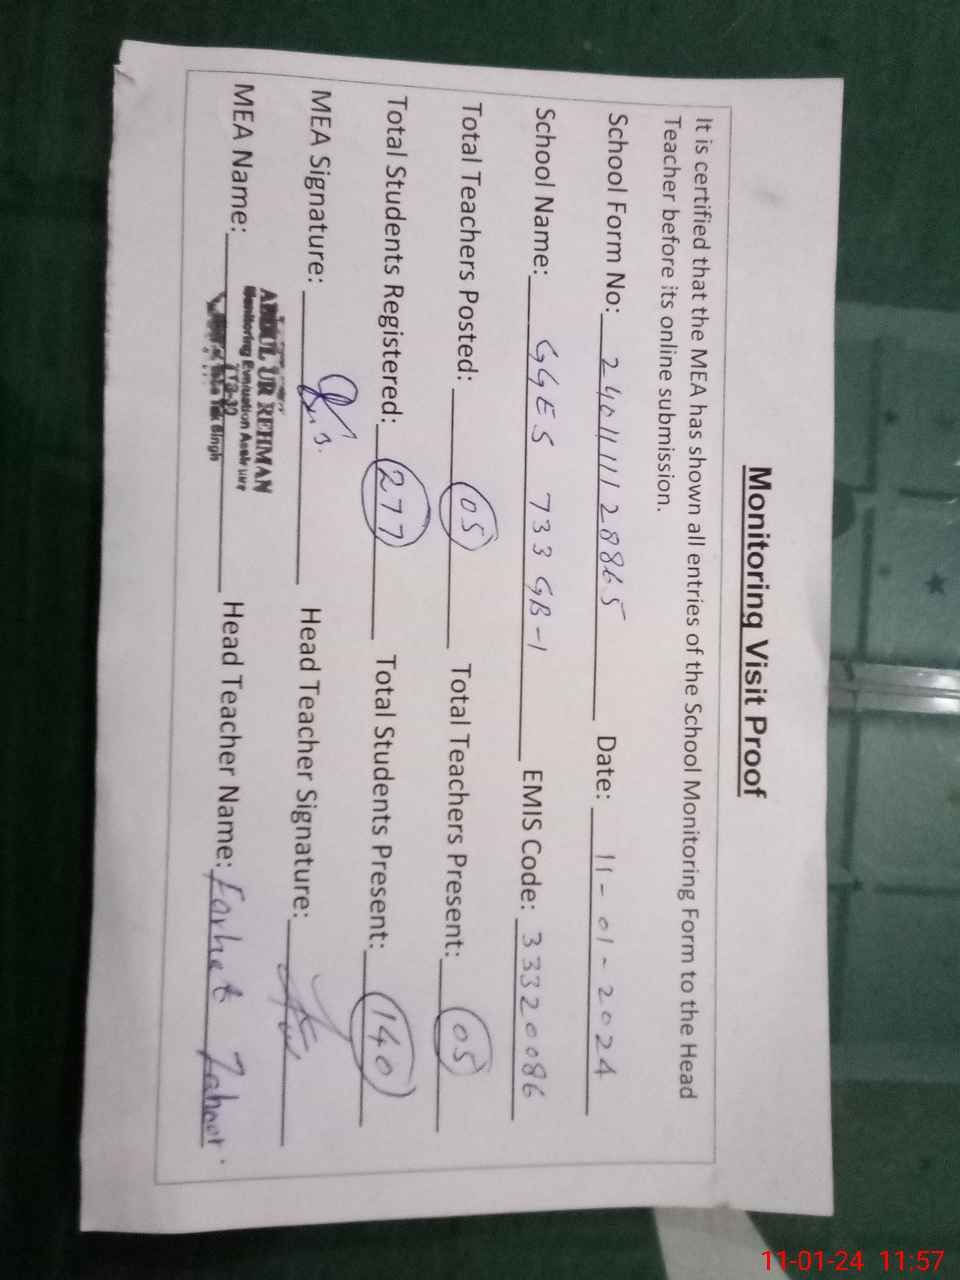 Monitoring Visit Proof
It is certified that the MEA has shown all entries of the School Monitoring Form to the Head
Teacher before its online submission.
School Form No: 240111128865 Date: 11-01-2024
School Name: GGES 733 GB-1 EMIS Code: 33320086
Total Teachers Posted: 05 Total Teachers Present: 05
Total Students Registered: 277 Total Students Present: 140
MEA Signature: Head Teacher Signature:
MEA Name: ABDUL UR REHMAN Head Teacher Name: Farhat Zahoor
Monitoring Evaluation Assistant
Tek Singh
11-01-24 11:57